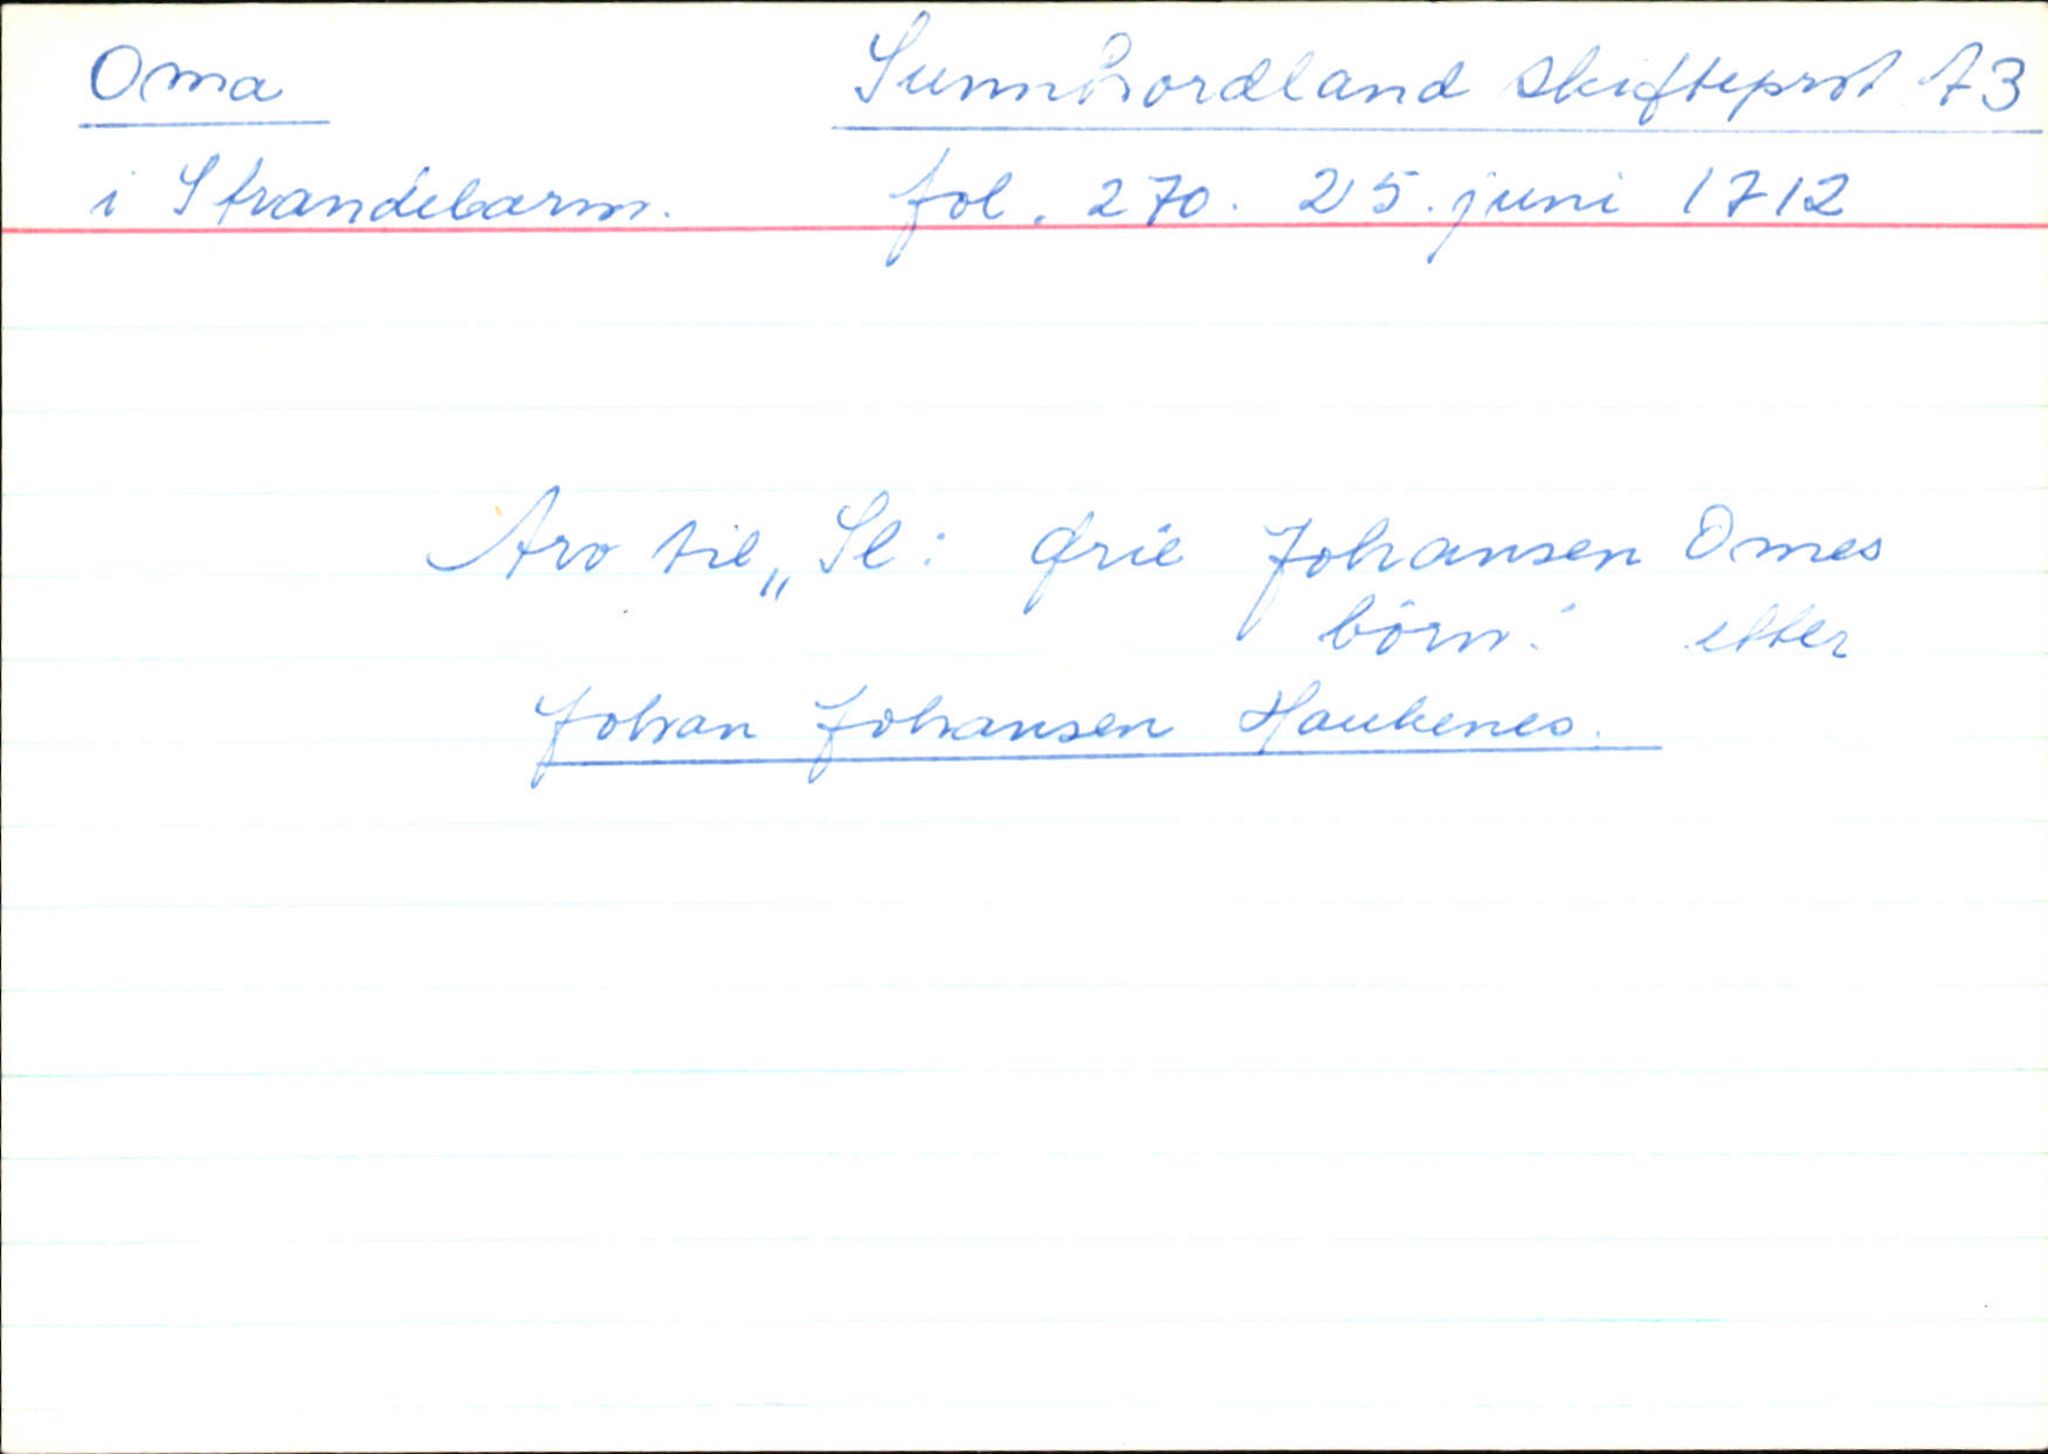 Oma Sunnhordland skifteprot A3
i Strandebarm. fol. 270. 25. juni 1712
Arv til „Sl: Ørie Johansen Omes
börn." etter
Johan Johansen Haukenes.